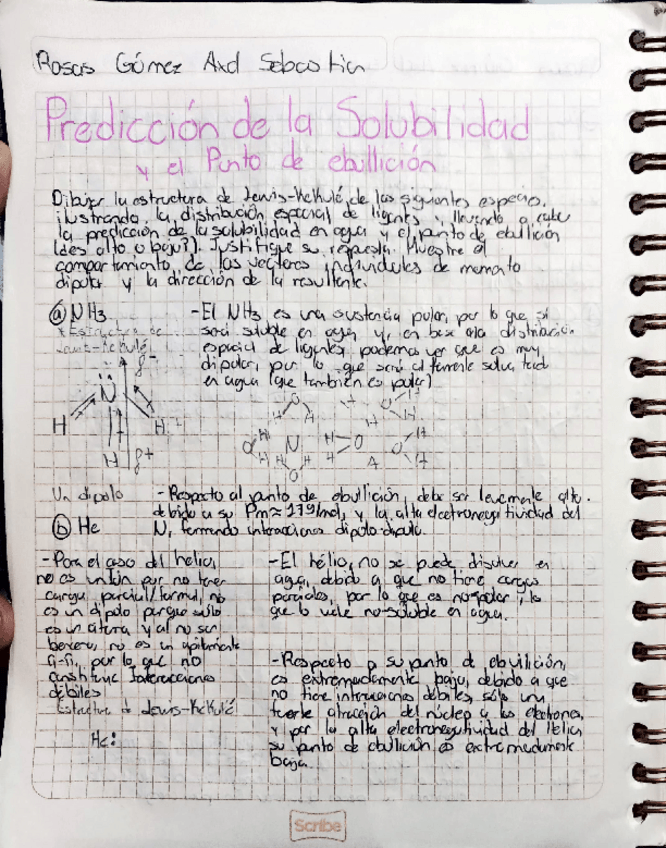 Rosas Gómez Axel Sebastian
Predicción de la Solubilidad
y el Punto de ebullición
Dibuje la estructura de Lewis-Kekulé, de las siguientes especies,
ilustrando, la distribución espacial de ligantes, llevando a cabo
la predicción de la solubilidad en agua y el punto de ebullición
(¿es alto o bajo?). Justifique su respuesta. Muestre el
comportamiento de los vectores individuales de momento
dipolar y la dirección de la resultante.
a) NH3
* Estructura de
Lewis-Kekulé
- El NH3 es una sustancia polar, por lo que si
será soluble en agua, y, en base a la distribución
espacial de ligantes, podemos ver que es muy
dipolar, por lo que será altamente
en agua (que también es polar)
δ-
N
H H
H δ+
H O H
N
Un dipolo
- Respecto al punto de ebullición, debe ser levemente alto.
debido a su Pm≈17g/mol, y la alta electronegatividad del
N, formando interacciones dipolo-dipolo.
b) He
- Para el caso del helio,
no es un ión por no tener
carga parcial/formal, no
es un dipolo porque sólo
es un átomo y al no ser
benceno, no es un
π-π, por lo que no
constituye interacciones
débiles
Estructura de Lewis-Kekulé
He:
- El hélio, no se puede disolver en
agua, debido a que no tiene cargas
parciales, por lo que es no-polar, lo
que lo vuelve no-soluble en agua.
- Respecto a su punto de ebullición,
es extremadamente bajo, debido a que
no tiene interacciones débiles, sólo una
fuerte atracción del núcleo a los electrones,
y por la alta electronegatividad del Helio
su punto de ebullición es extremadamente
bajo.
Scribe